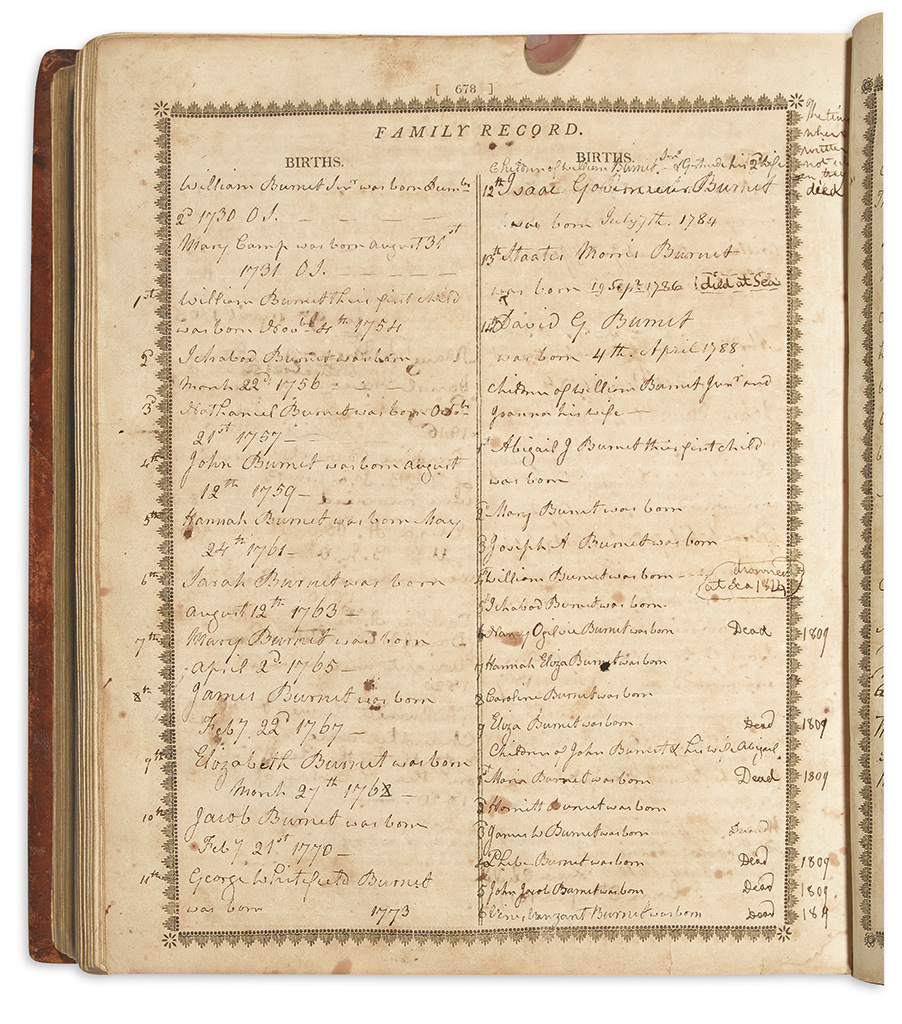 [ 678 ]
FAMILY RECORD.
BIRTHS.
William Burnet Junr was born Decmbr
2d 1730 O S.
Mary Camp was born august 31st
1731 O S.
1st William Burnet their first child
was born Novbr 4th 1754
2d Ichabod Burnet was born
March 22d 1756
3d Nathaniel Burnet was born Octobr
21st 1757
4th John Burnet was born august
12th 1759
5th Hannah Burnet was born May
24th 1761
6th Sarah Burnet was born
august 12th 1763
7th Mary Burnet was born
april 2d 1765
8th James Burnet was born
Feby. 22d 1767
9th Elizabeth Burnet was born
March 27th 1768
10th Jacob Burnet was born
Feby 21st 1770
11th George Whitefield Burnet
was born 1773
BIRTHS.
Children of William Burnet Senr & Gertrude his 2d wife
12th Isaac Gouverneur Burnet
was born July 7th. 1784
13th Staates Morris Burnet
was born 19 Sept. 1786 died at Sea
14th David G. Burnet
was born 4th. April 1788
Children of William Burnet Junr and
Joanna his wife
1st Abigail J Burnet their first child
was born
2 Mary Burnet was born
3 Joseph A Burnet was born
4 William Burnet was born drowned
at Sea
5 Ichabod Burnet was born
6 Nancy Ogilvie Burnet was born Dead 1809
7 Hannah Eliza Burnet was born
8 Caroline Burnet was born
9 Eliza Burnet was born Dead 1809
Children of John Burnet & his wife Abigail
1st Maria Burnet was born Dead 1809
2 Harriett Burnet was born
3 James W Burnet was born
4 Phebe Burnet was born Dead 1809
5 John Jacob Burnet was born Dead 1809
6 Burnet was born Dead
The
when
written
not
in
deed